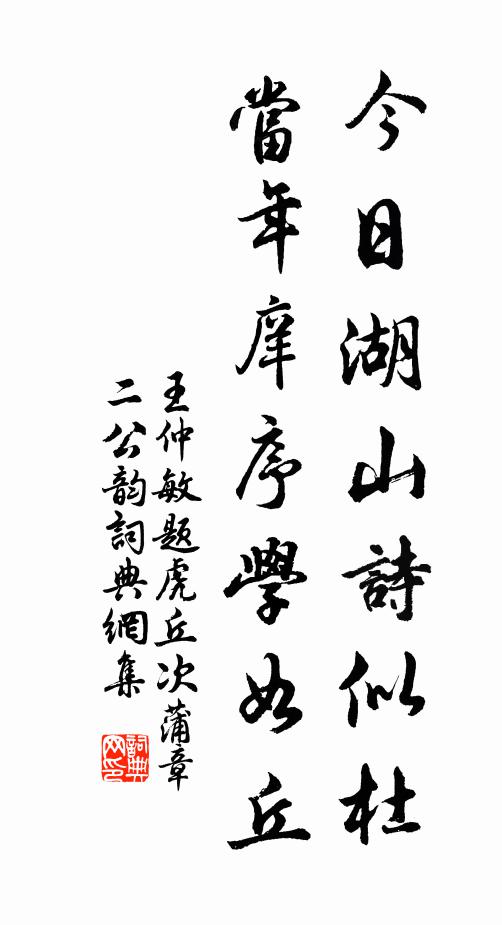 今日湖山詩似杜
當年庠序學如丘
王仲敏題虎丘次蒲章
二公韵詞典網集
詞典网印